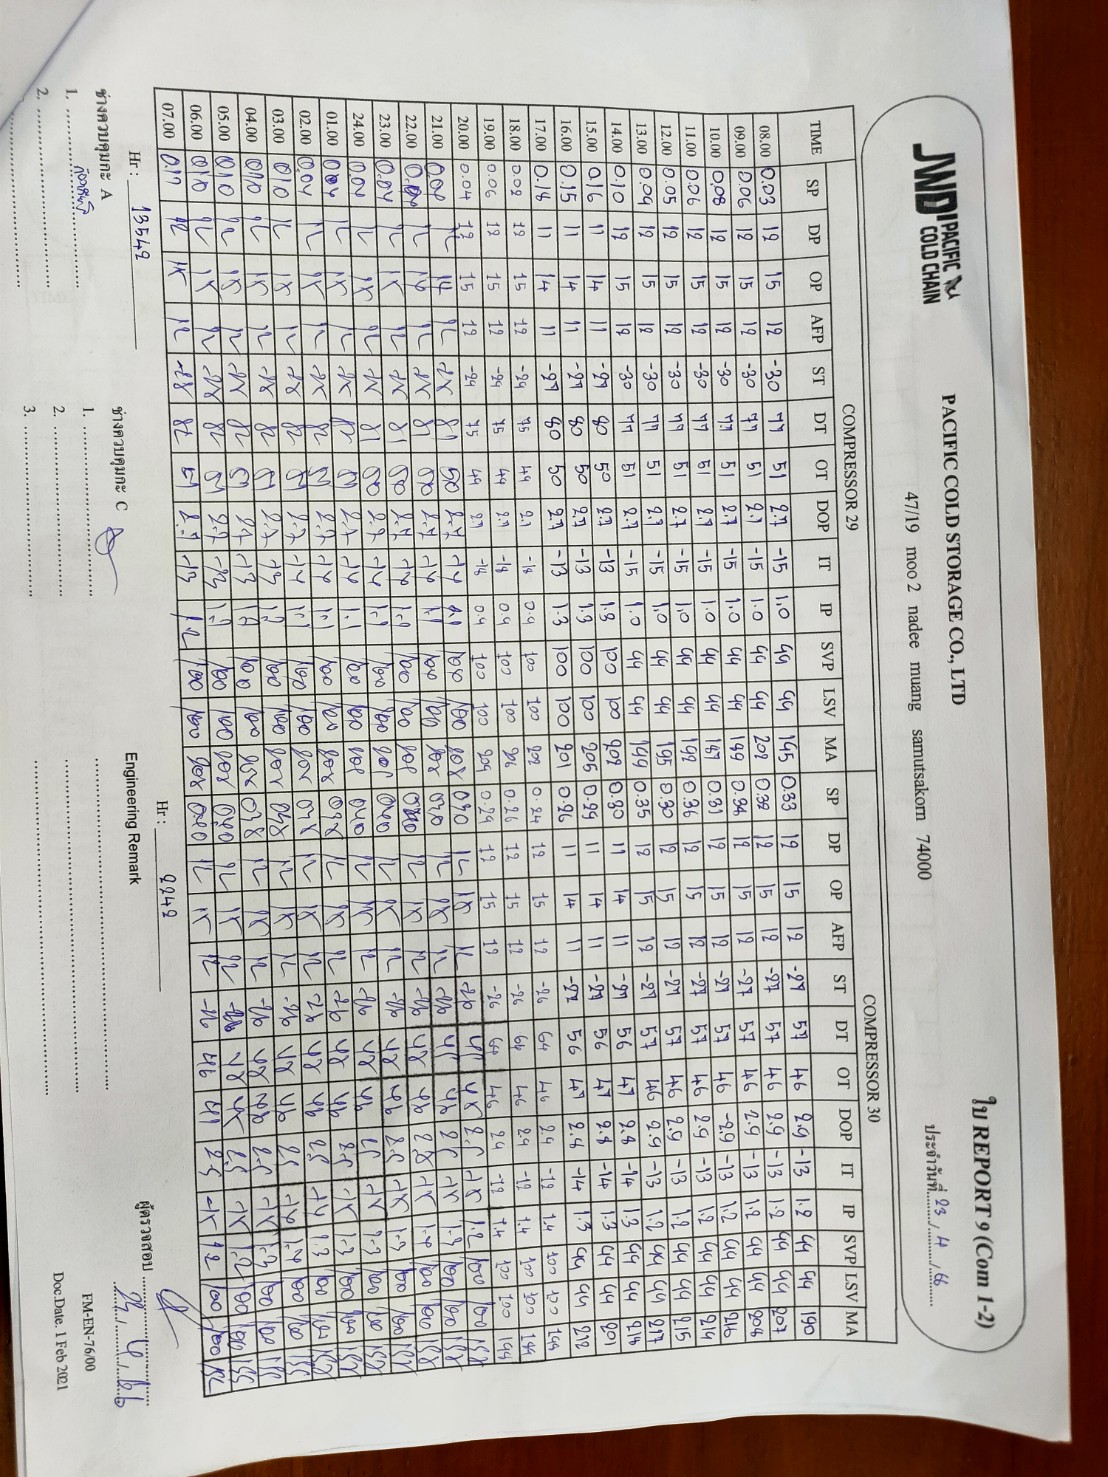 JWD PACIFIC COLD CHAIN
PACIFIC COLD STORAGE CO., LTD
47/19 moo 2 nadee muang samutsakorn 74000
ใบ REPORT 9 (Com 1-2)
ประจำวันที่ 23 / 4 / 66
TIME COMPRESSOR 29 COMPRESSOR 30
SP DP OP AFP ST DT OT DOP IT IP SVP LSV MA SP DP OP AFP ST DT OT DOP IT IP SVP LSV MA
08.00 0.03 12 15 12 -30 77 51 2.7 -15 1.0 99 99 195 0.33 12 15 12 -27 57 46 2.9 -13 1.2 99 99 190
09.00 0.06 12 15 12 -30 77 51 2.7 -15 1.0 99 99 202 0.32 12 15 12 -27 57 46 2.9 -13 1.2 99 99 207
10.00 0.08 12 15 12 -30 77 51 2.7 -15 1.0 99 99 189 0.34 12 15 12 -27 57 46 2.9 -13 1.2 99 99 208
11.00 0.06 12 15 12 -30 77 51 2.7 -15 1.0 99 99 187 0.31 12 15 12 -27 57 46 -2.9 -13 1.2 99 99 216
12.00 0.05 12 15 12 -30 77 51 2.7 -15 1.0 99 99 192 0.36 12 15 12 -27 57 46 2.9 -13 1.2 99 99 214
13.00 0.09 12 15 12 -30 77 51 2.7 -15 1.0 99 99 195 0.30 12 15 12 -27 57 46 2.9 -13 1.2 99 99 215
14.00 0.10 12 15 12 -30 77 51 2.7 -15 1.0 99 99 199 0.35 12 15 12 -27 57 46 2.9 -13 1.2 99 99 217
15.00 0.16 11 14 11 -27 80 50 2.7 -13 1.3 100 100 202 0.30 11 14 11 -27 56 47 2.8 -14 1.3 99 99 218
16.00 0.15 11 14 11 -27 80 50 2.7 -13 1.3 100 100 205 0.29 11 14 11 -27 56 47 2.8 -14 1.3 99 99 201
17.00 0.18 11 14 11 -27 80 50 2.7 -13 1.3 100 100 201 0.26 11 14 11 -27 56 47 2.8 -14 1.3 99 99 212
18.00 0.02 12 15 12 -29 75 49 2.7 -18 0.9 100 100 202 0.24 12 15 12 -26 64 46 2.9 -12 1.4 100 100 199
19.00 0.06 12 15 12 -29 75 49 2.7 -18 0.9 100 100 206 0.26 12 15 12 -26 64 46 2.9 -12 1.4 100 100 199
20.00 0.04 12 15 12 -29 75 49 2.7 -18 0.9 100 100 209 0.29 12 15 12 -26 64 46 2.9 -12 1.4 100 100 198
21.00 12 14 12 -28 81 50 2.7 -14 1.1 100 100 208 12 15 12 -26 1.2 100 100
22.00 0.04 12 14 12 -28 81 50 2.7 -14 1.1 100 100 208 12 15 12 -26 46 1.3 100 100
23.00 0.04 12 15 12 -28 81 50 2.7 -14 1.1 100 100 12 15 12 -26 48 46 100 100
24.00 0.04 12 15 12 -28 81 50 2.7 -14 1.1 100 100 040 12 15 12 -26 48 46 1.3 100 100
01.00 12 15 12 -28 82 51 2.7 -14 1.1 100 100 208 038 12 15 12 -26 48 46 1.3 100 100
02.00 0.04 12 15 12 -28 82 51 2.7 -14 1.1 100 100 208 038 12 15 12 -26 48 46 1.3 100 100
03.00 010 12 15 12 -28 82 51 2.7 -13 100 100 208 038 12 15 12 -26 48 46 1.4 100 100
04.00 010 12 15 12 -28 82 51 2.7 -13 100 100 208 038 12 15 12 -26 48 46 1.3 100 100
05.00 010 12 15 12 -28 82 51 2.7 -13 100 100 208 040 12 15 12 -26 48 1.2 100 100
06.00 010 12 15 12 -28 82 51 2.7 100 100 208 040 12 15 12 -26 46 1.2 100 100
07.00 0.17 12 15 12 -28 82 51 2.7 -13 1.2 100 100 208
Hr : 13542
Hr : 2242
ช่างควบคุมกะ A
1.
2.
ช่างควบคุมกะ C
1.
2.
3.
Engineering Remark
ผู้ตรวจสอบ
23 / 4 / 66
FM-EN-76/00
Doc.Date. 1 Feb 2021